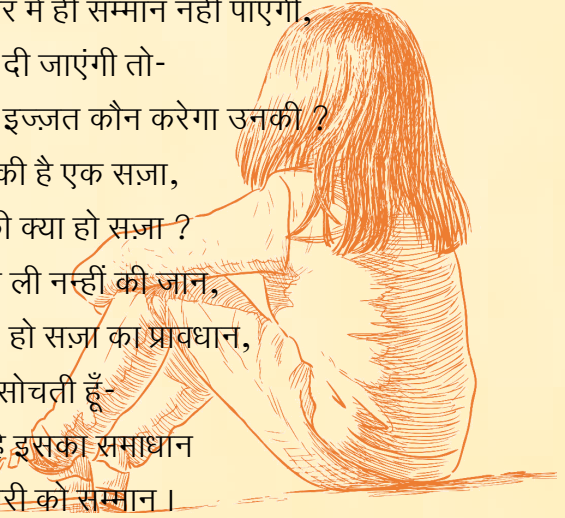 में ही सम्मान नहीं पाएंगी,
दी जाएंगी तो-
इज्ज़त कौन करेगा उनकी ?
की है एक सज़ा,
क्या हो सज़ा ?
ली नन्हीं की जान,
हो सज़ा का प्रावधान,
सोचती हूँ-
इसका समाधान
को सम्मान ।